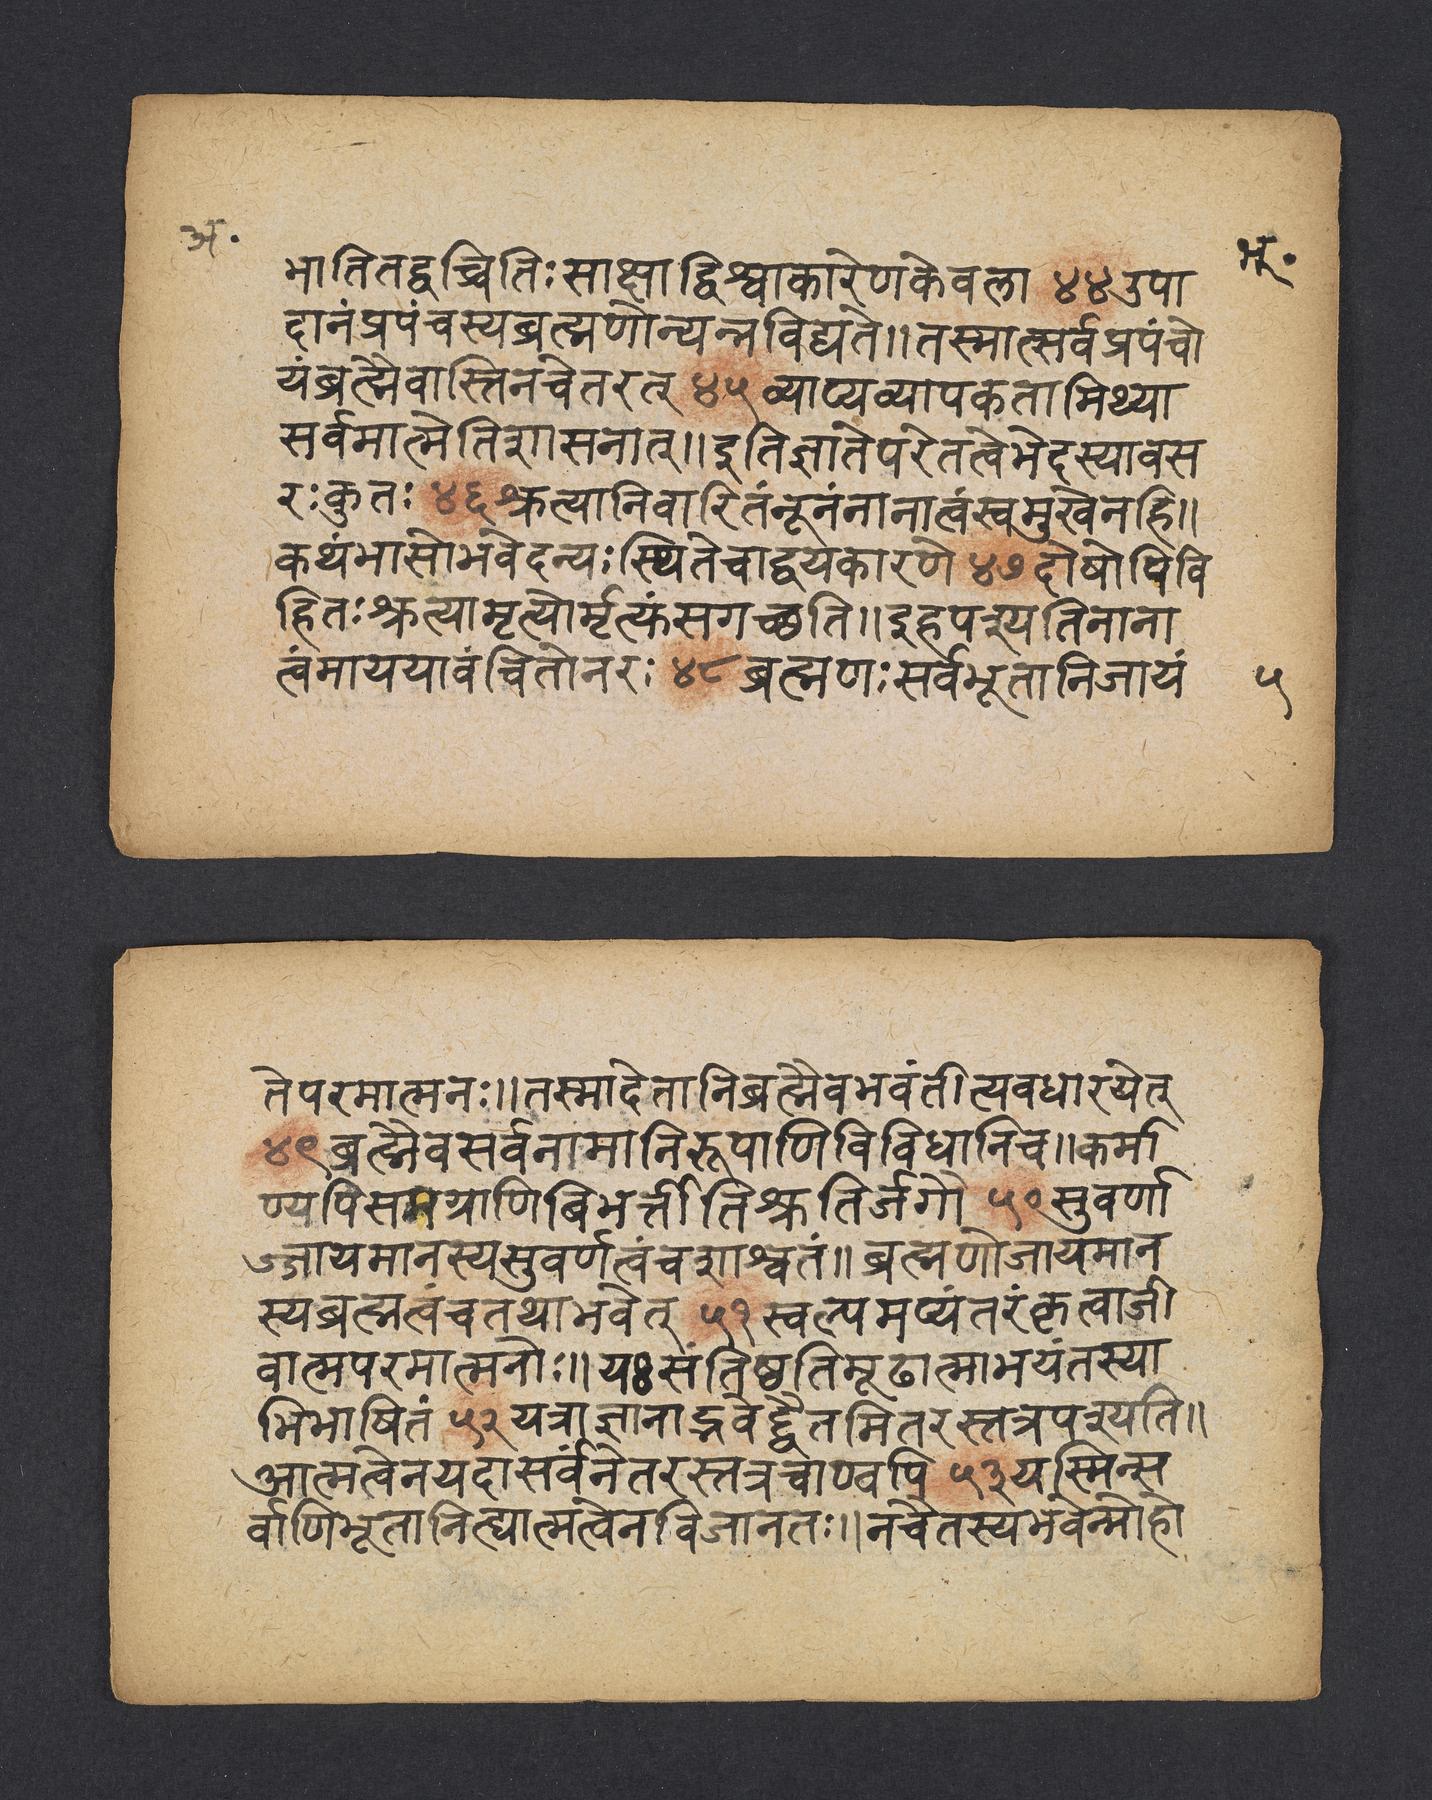 अ॰
भू॰
भातितद्वच्चितिःसाक्षाद्विश्वाकारेणकेवला ४४ उपा
दानंप्रपंचस्यब्रह्मणोन्यन्नविद्यते॥तस्मात्सर्वप्रपंचो
यंब्रह्मैवास्तिनचेतरत् ४५ व्याप्यव्यापकतामिथ्या
सर्वमात्मेतिशासनात्॥इतिज्ञातेपरेतत्वेभेदस्यावस
रःकुतः ४६ श्रुत्यानिवारितंनूनंनानात्वंस्वमुखेनहि॥
कथंभासोभवेदन्यःस्थितेचाद्वयकारणे ४७ दोषोपिवि
हितःश्रुत्यामृत्योर्मृत्युंसगच्छति॥इहपश्यतिनाना
त्वंमाययावंचितोनरः ४८ ब्रह्मणःसर्वभूतानिजायं
५
तेपरमात्मनः॥तस्मादेतानिब्रह्मैवभवंतीत्यवधारयेत्
४९ ब्रह्मैवसर्वनामानिरूपाणिविविधानिच॥कर्मा
ण्यपिसमग्राणिबिभर्त्तीतिश्रुतिर्जगौ ५० सुवर्णा
ज्जायमानस्यसुवर्णत्वंचशाश्वतं॥ब्रह्मणोजायमान
स्यब्रह्मत्वंचतथाभवेत् ५१ स्वल्पमप्यंतरंकृत्वाजी
वात्मपरमात्मनोः॥यःसंतिष्ठतिमूढात्माभयंतस्या
भिभाषितं ५२ यत्राज्ञानाद्भवेद्द्वैतमितरस्तत्रपश्यति॥
आत्मत्वेनयदासर्वंनेतरस्तत्रचाण्वपि ५३ यस्मिन्स
र्वाणिभूतानित्ह्यात्मत्वेनविजानतः॥नचैतस्यभवेन्मोहो